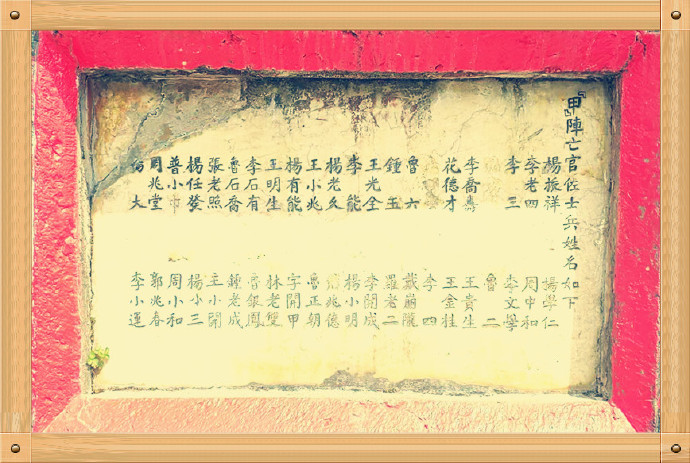 『甲』陣亡官佐士兵姓名如下
楊振祥
李老四
李三
李喬壽
花德才
魯六
鍾五
王光全
李能
楊老久
王小兆
楊有能
王明生
李石有
魯石喬
張老照
楊任發
普小
周兆堂
大
楊學仁
周中和
李文學
魯二
王貴生
王金桂
李四
戴崩隴
羅老二
李開成
楊小明
兆德
魯正朝
字開甲
林老雙
銀鳳
鍾老成
王小開
楊小三
周小和
郭兆春
李小運